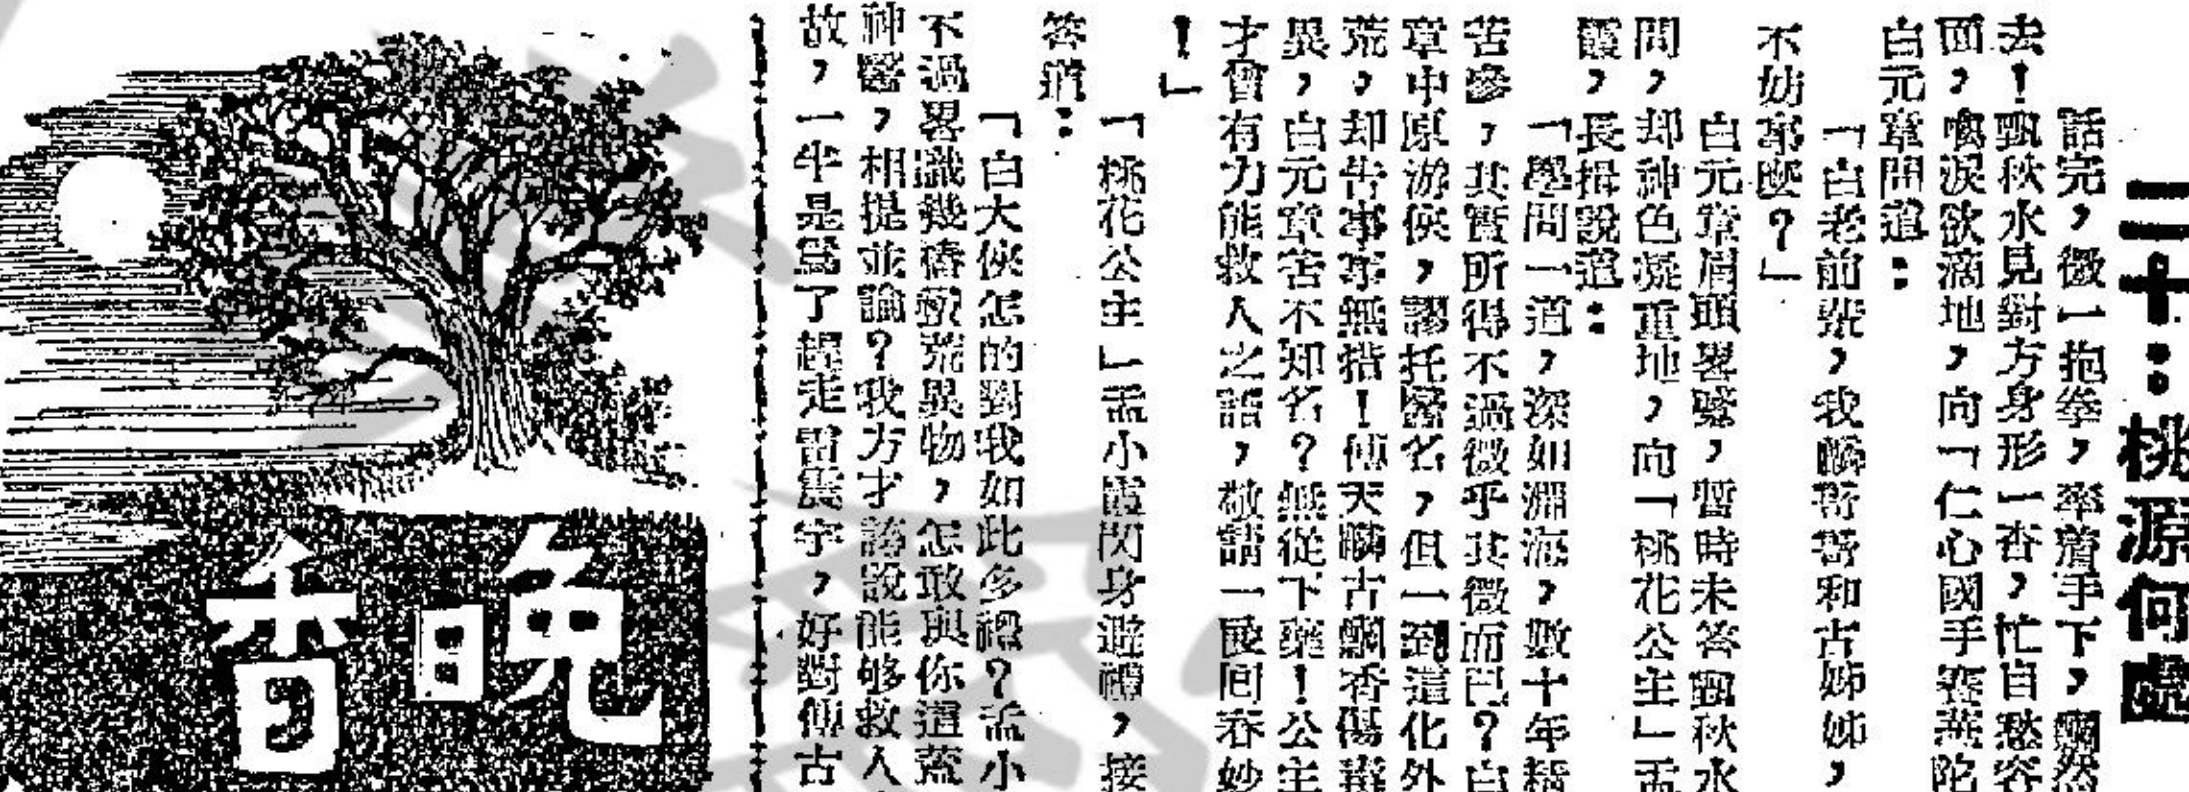 二十：桃源何處
話完，微一抱拳，率着手下，飄然
去！甄秋水見對方身形一杳，忙自愁容
面，喚淚欲滴地，向「仁心國手賽華陀
白元章問道：
「白老前輩，我麟哥哥和古姊姊，
不妨事麼？」
白元章眉頭畧蹙，暫時未答甄秋水
問，却神色凝重地，向「桃花公主」孟
霞，長揖說道：
「學問一道，深如淵海，數十年精
苦參，其實所得不過微乎其微而已？白
章中原游俠，謬托醫名，但一到這化外
荒，却告事事無措！傅天麟古蘭香傷毒
異，白元章苦不知名？無從下藥！公主
才會有力能救人之語，敬請一展回春妙
！」
「桃花公主」孟小霞閃身避禮，接
答道：
「白大俠怎的對我如此多禮？孟小
不過畧識幾種蠻荒異物，怎敢與你這蓋
神醫，相提並論？我方才誇說能够救人
故，一半是爲了趕走雷震宇，好對傅古
晚香